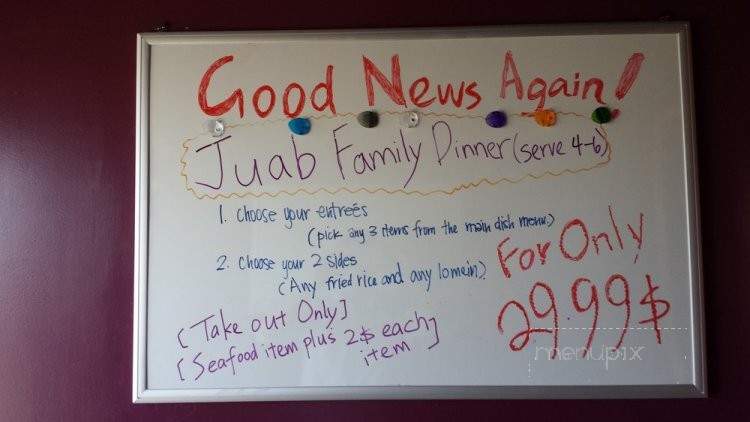 Good News Again!
Juab Family Dinner (serve 4-6)
1. choose your entreés
(pick any 3 items from the main dish menu.)
2. choose your 2 sides
(Any fried rice and any lomein)
For Only
29.99$
[Take out Only]
[Seafood item plus 2$ each
item]
menupix